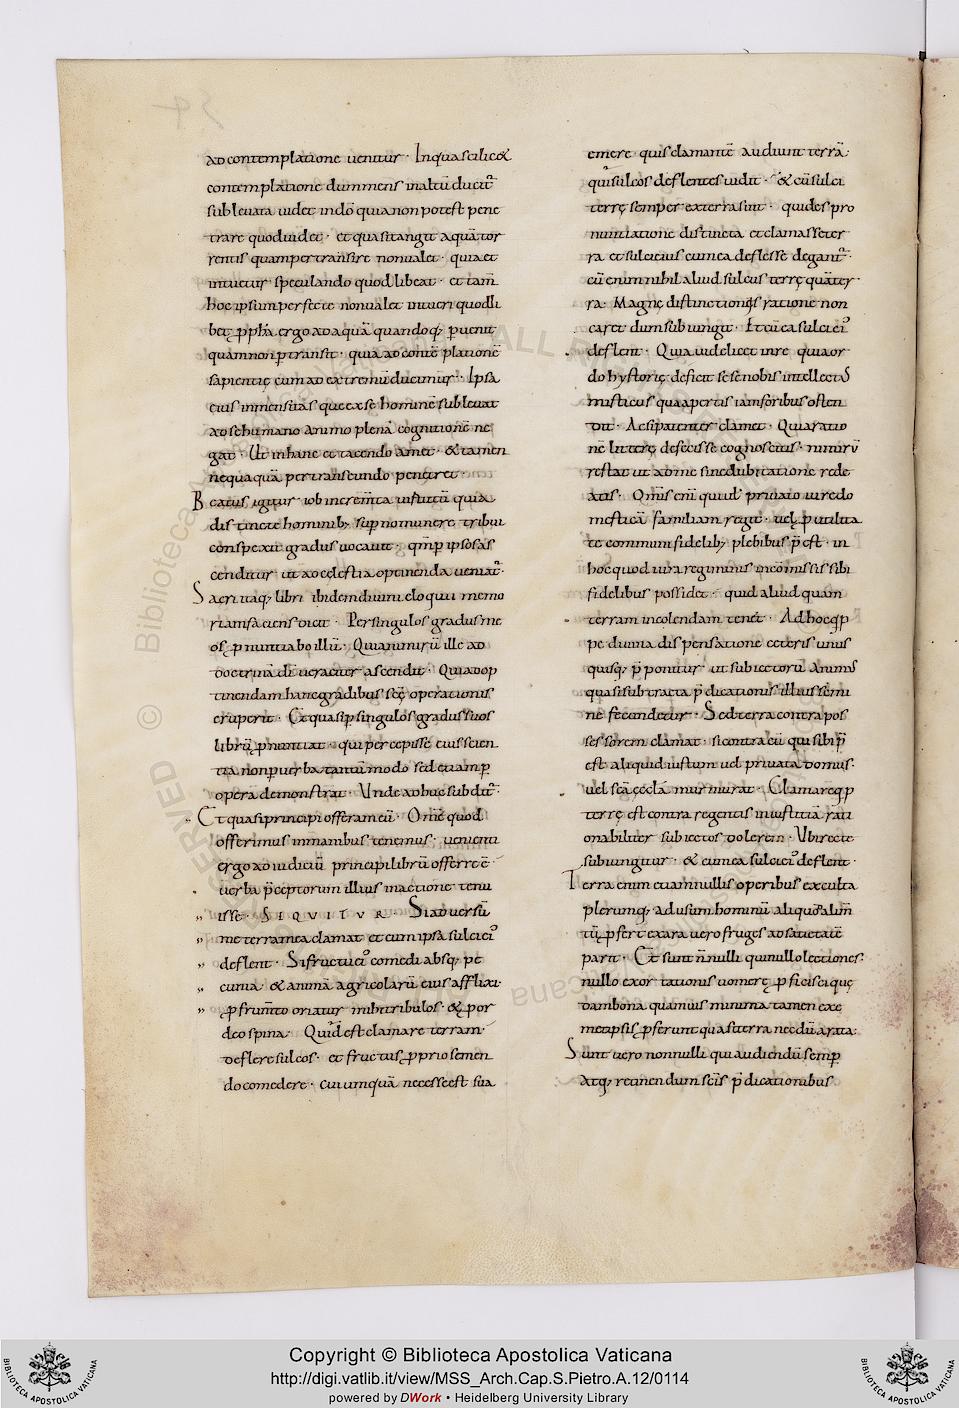 ad contemplatione uenitur · In qua scilic&
contemplatione dum mens in altū ducit᷑
subleuata uidet in dō quia non potest pene
trare quod uidet · et quasi tangit aquā tor
rentis quam pertransire non ualet · quia et
intuetur speculando quod libeat · et tam̄
hoc ipsum perfecte non ualet intueri quod li
bet; ꝓph̄a ergo ad aquā quandoq; ꝑuenit
quam non ꝑtransit · quia ad contēplationē
sapientię cum ad extremū ducimur · Ipsa
eius inmensitas que ex se hominē subleuat
ad se humano animo plenā cognitionē ne
gat · Ut in hanc et tacendo amet · & tamen
nequaquā pertranseundo penetret ·
Beatus igitur iob incrementa uirtutū quia
distincte hominib; sup̄no munere tribui
conspexit gradus uocauit · qm̄ ꝑ ipsos as
cenditur ut ad cęlestia optinenda ueniat᷑ ·
Sacri itaq; libri ibidem diuini eloquii memo
riam faciens dicit · Per singulos gradus me
os ꝓnuntiabo illū · Quia nimirū ille ad
doctrinā dī ueraciter ascendit · Quia ad op
tinendam hanc gradibus scę operationis
eruperit · Et quasi ꝑ singulos gradus suos
librū ꝓnuntiat · qui percepisse eius scien
tiā non ꝑ uerba tantūmodo sed etiam ꝑ
opera demonstrat · Unde adhuc subdit᷑ ·
Et quasi principi offeram eū · Omē quod
offerimus in manibus tenemus · uenienti
ergo ad iudiciū principi librū offerre ē ·
uerba p̄ceptorum illius in actione tenu
isse · SIQUITUR · Si aduersū
me terra mea clamat et cum ipsa sulci ei᷒
deflent · Si fructū ei᷒ comedi absq; pe
cunia · & animā agricolarū eius afflixi ·
ꝓ frumto oriatur mihi tribulos · & ꝓ or
deo spina; Quid est clamare terram ·
deflere sulcos · et fructus ꝓprio semen
do comedere · cui umquā necesse est sua
emere quis clamantē audiuit terrā;
quis sulcos deflentes uidit · & cū sulci
terrę semper ex terra sint · quid es pro
nuntiatione distincta et clamasse ter
ra et sulci eius cum ea deflesse degant᷑ ·
cū enim nihil aliud sulcus terrę quā ter
ra; Magnę distinctionis ratione non
caret dum subiungit · Et cū ea sulci ei᷒
deflent · Quia uidelicet in re quia or
do hystorię deficit sese nobis intellect᷒
misticus qua apertis iam foribus osten
dit · Ac si patenter clamet · Quia ratio
nē litterę defecisse cognoscitis · nimirū
restat ut ad me sine dubitatione rede
atis · Omīs eni qui ut priuato iure do
mesticā familiam regit · uel ꝓ utilita
te communi fidelib; plebibus p̄est · in
hoc quod iura regiminis incōmissis sibi
fidelibus possidet · quid aliud quam
terram incolendam tenet · Ad hoc q̄pp
pe diuina dispensatione ceteris unus
quisq; p̄ponitur · ut subiectorū animus
quasi substracta p̄dicationis illius semi
ne fecundetur · Sed terra contra pos
sessorem clamat · si contra eū qui sibi p̄
est aliquid iustum uel priuata domus
uel scā ęcclā murmurat · Clamare q̄p
terrę est contra regentis iniustitiā rati
onabiliter subiectos dolere · Ubi recte
subiungitur · & cum ea sulci ei᷒ deflent ·
Terra enim etiam nullis operibus exculta
plerumq; ad usum hominū aliquod alim
tū ꝓfert exara uero fruges ad satietatē
parit · Et sunt n̄nulli qui nullo lectionis
nullo exortationis uomere ꝓscissi quę
dam bona quamuis minima tamen exe
metipsis ꝓferunt quasi terra necdū arata;
Sunt uero nonnulli qui audiendū semꝑ
atq; retinendum scīs p̄dicationibus
Copyright © Biblioteca Apostolica Vaticana
http://digi.vatlib.it/view/MSS_Arch.Cap.S.Pietro.A.12/0114
powered by DWork • Heidelberg University Library